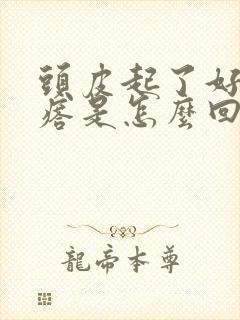 頭皮起了好
痞是怎麼回
龍帝本尊